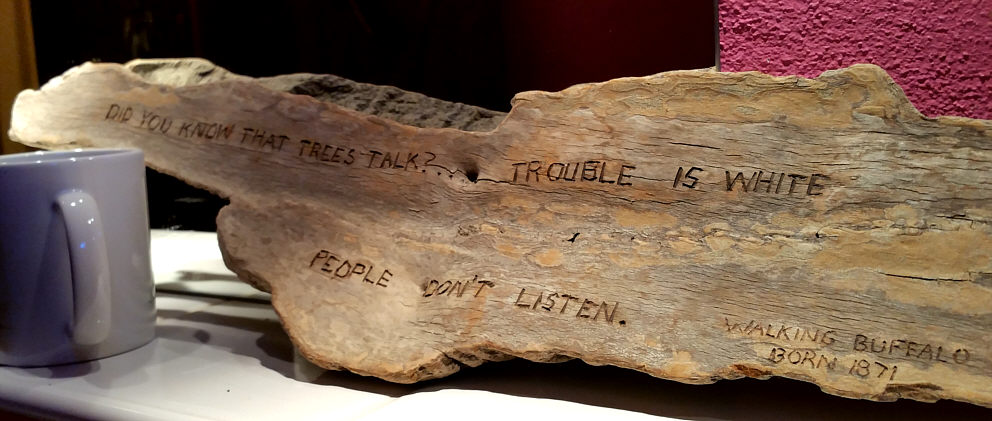 DID YOU KNOW THAT TREES TALK?.. TROUBLE IS WHITE
PEOPLE DON'T LISTEN.
WALKING BUFFALO
BORN 1871